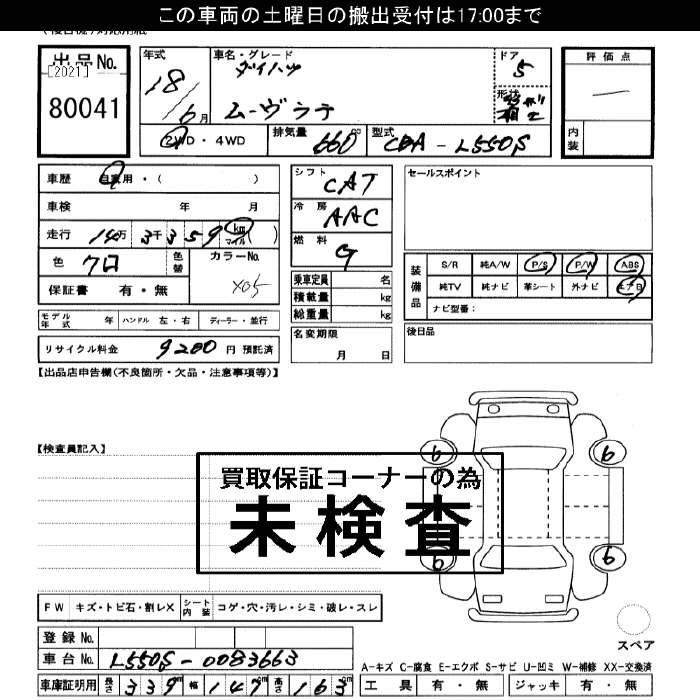 この車両の土曜日の搬出受付は17:00まで
出品No.
[2021]
80041
年式
18/6月
車名・グレード
ダイハツ
ムーヴラテ
ドア
5
形状
評価点
―
内装
2WD・4WD
排気量
660 cc
型式
CBA-L550S
車歴 自家用・( )
車検 年 月
走行 14万3千359 km マイル ( )
色 クロ 色替
カラーNo.
X05
保証書 有・無
シフト
CAT
冷房
AAC
燃料
G
乗車定員 名
積載量 kg
総重量 kg
セールスポイント
装備品
S/R 純A/W P/S P/W ABS
純TV 純ナビ 革シート 外ナビ エアB
ナビ型番:
モデル年式 年 ハンドル 左・右 ディーラー・並行
名変期限
月 日
後日品
リサイクル料金 9200 円 預託済
【出品店申告欄(不良箇所・欠品・注意事項等)】
【検査員記入】
6 6
6 6
買取保証コーナーの為
未検査
FW キズ・トビ石・割レX シート内装 コゲ・穴・汚レ・シミ・破レ・スレ
スペア
登録No.
車台No. L550S-0083663
A-キズ C-腐食 E-エクボ S-サビ U-凹ミ W-補修 XX-交換済
車庫証明用 長さ 339 cm 幅 147 cm 高さ 163 cm
工具 有・無 ジャッキ 有・無